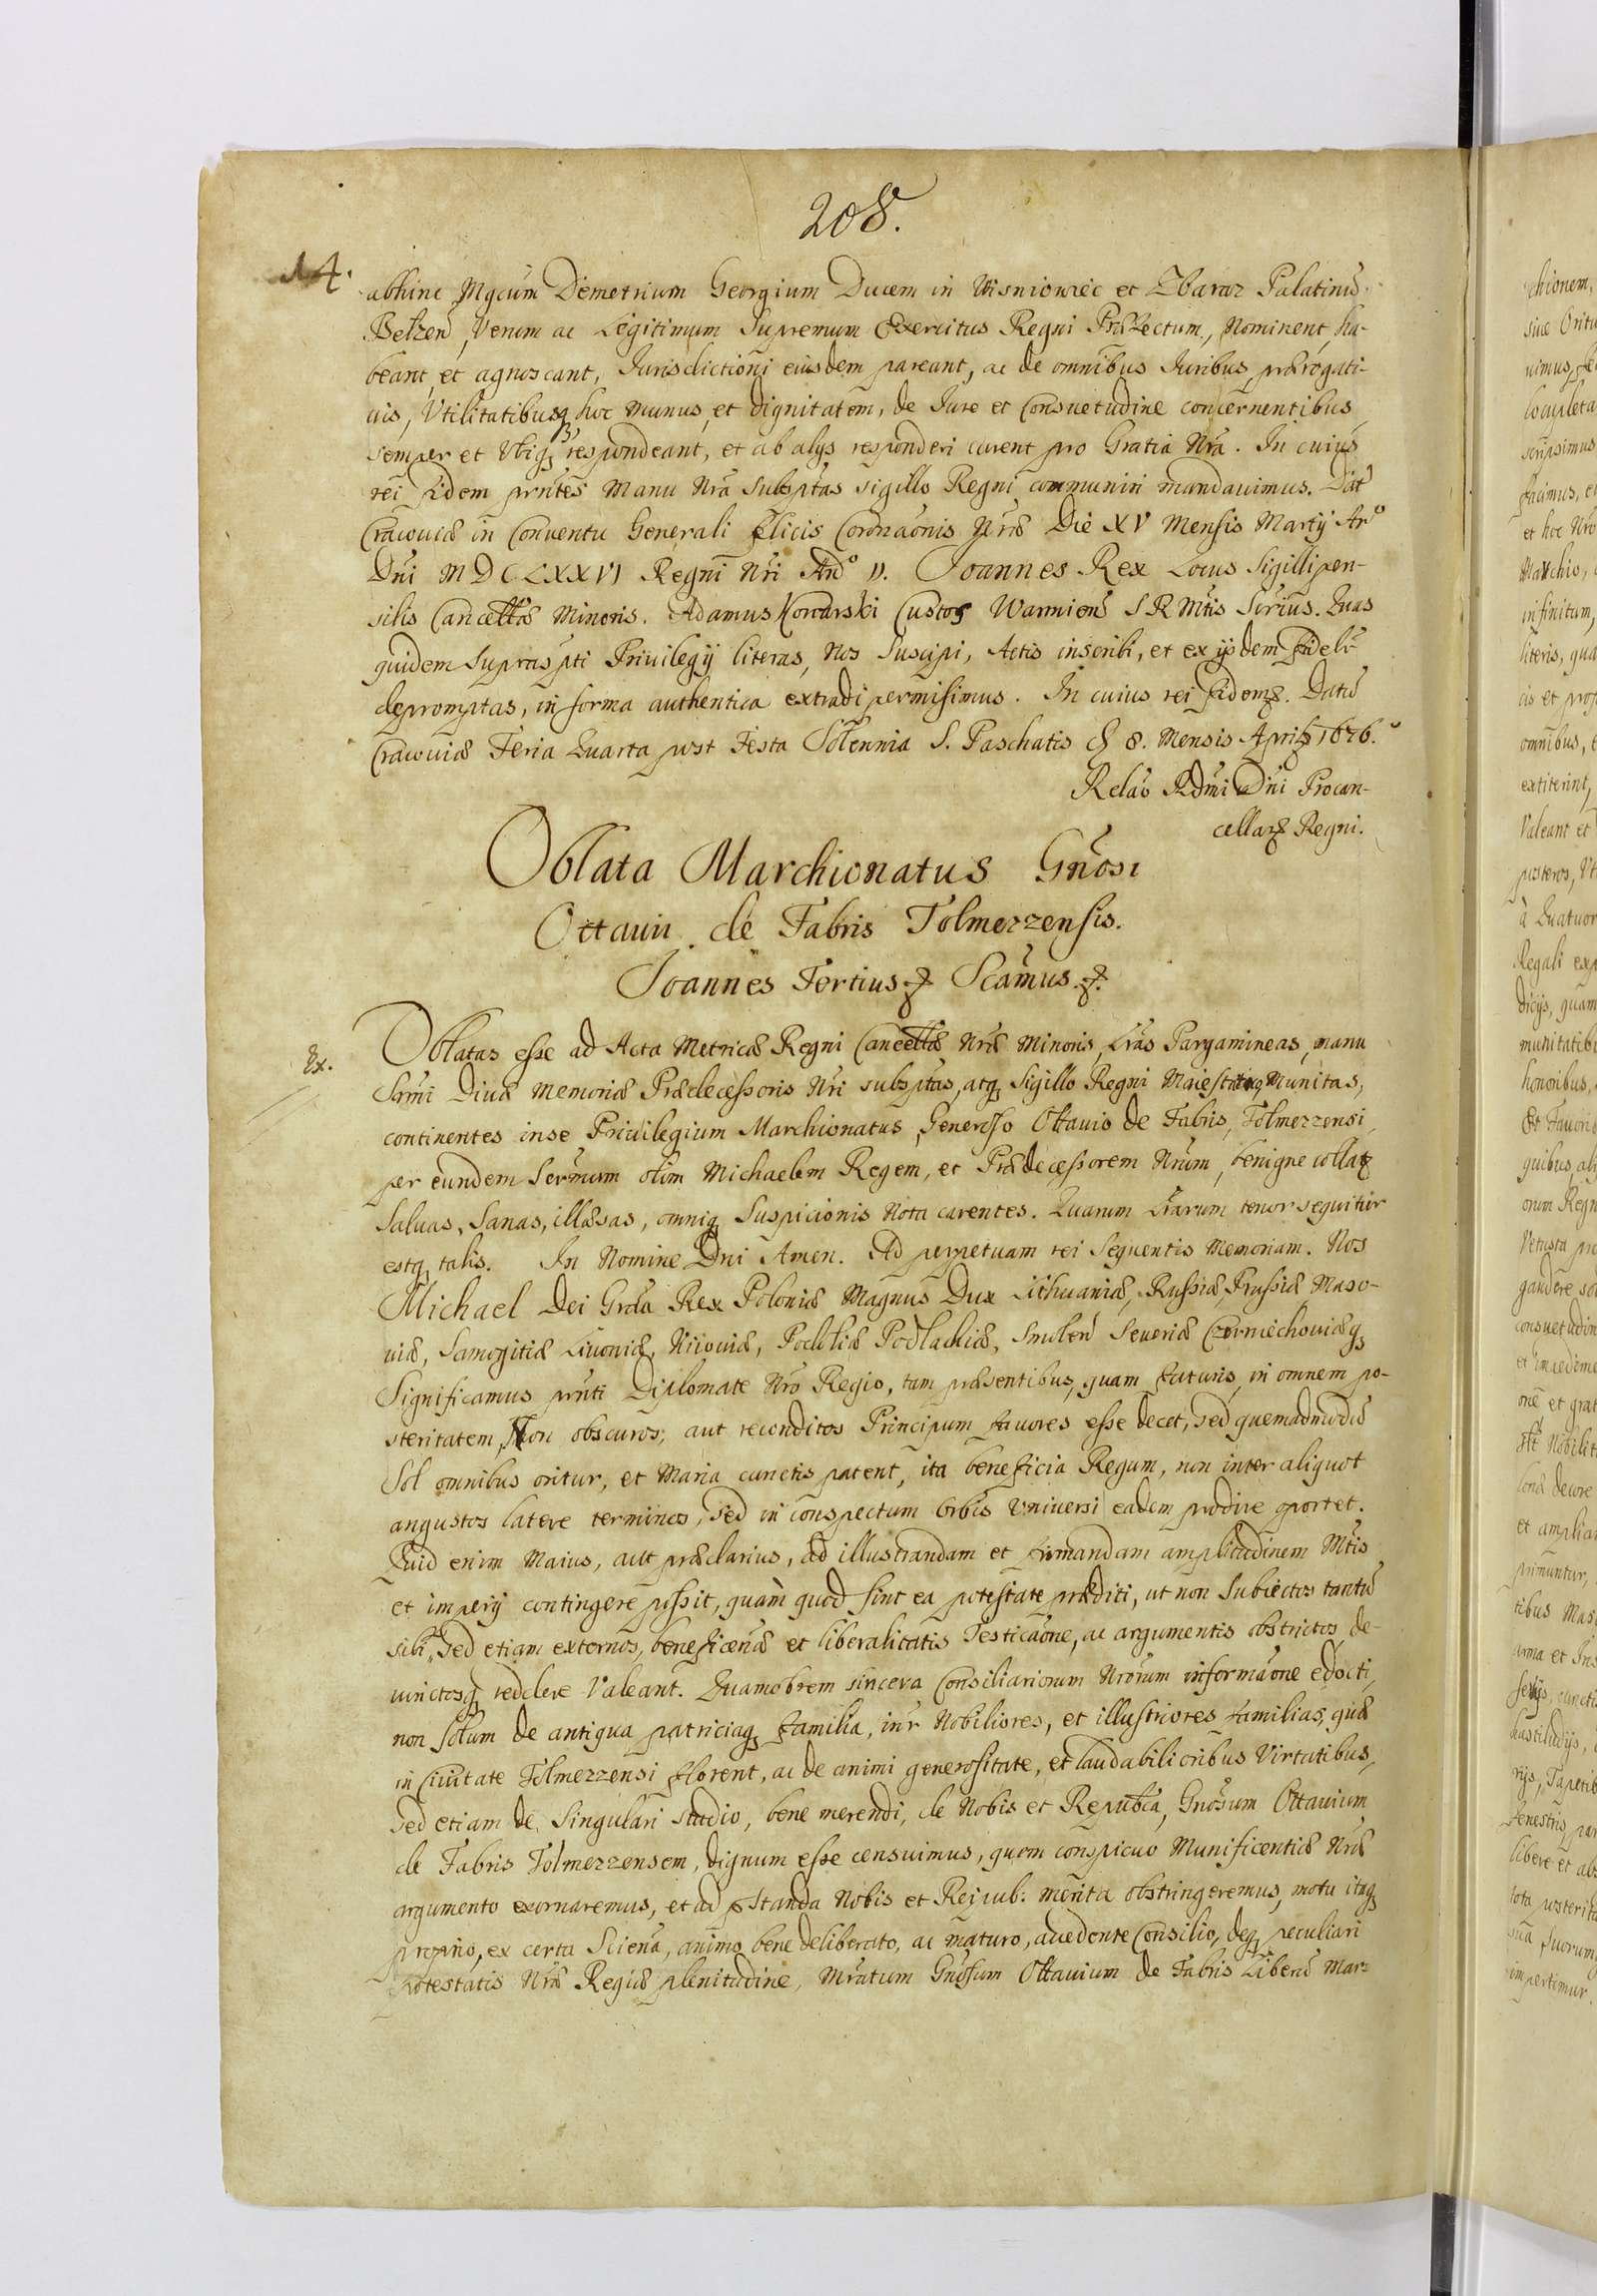 208.
14.
abhinc Mgcum Demetrium Georgium Ducem in Wisniowiec et Zbaraz Palatinū
Belzen, Verum ac Legitimum Supremum Exercitus Regni Præfectum, Nominent, ha-
beant et agnoscant, Jurisdictioni eiusdem pareant, ac de omnibus Iuribus prærogati-
uis, Vtilitatibusq hoc munus, et dignitatem, de Iure et Consuetudine concernentibus
semper et Vbiq respondeant, et ab alys responderi curent pro Gratia Nrā. In cuius
rei fidem prntes Manu Nrā Subsptas sigillo Regni communiri mandauimus. Dat
Cracouiæ in Conuentu Generali fælicis Coronaōnis Nræ Die XV Mensis Martij Anō
Dni MDCLXXVI Regni Nri Anō II. Joannes Rex Locus Sigilli pen-
silis Cancellæ Minoris. Adamus Kotarski Custos Warmien S R Mtis Scrius. Quas
quidem Suprasspti Priuilegij literas, Nos Suscipi, Actis inscribi, et ex ijsdem fidelr
depromptas, in forma authentica extradi permisimus. In cuius rei fidem. Datū
Cracouiæ Feria Quarta post Festa Solennia S. Paschatis 8. Mensis Aprilis 1676.
Relaō Rdmi Dni Procan-
cellar Regni.
Oblata Marchionatus Gnōsi
Ottauii de Fabris Tolmezzensis.
Joannes Tertius Scamus
Ex.
Oblatas esse ad Acta Metricæ Regni Cancellæ Nræ Minoris, Lras Pargamineas, manu
Srmi Diuæ memoriæ Prædecessoris Nri subsptas, atq Sigillo Regni Maiestatisq Munitas,
continentes in se Priuilegium Marchionatus, Generoso Ottauio de Fabris, Tolmezzensi,
per eundem Sermum olim Michaelem Regem, et Prædecessorem Nrum, benigne collat
Saluas, Sanas, illæsas, omniq Suspicionis Nota carentes. Quarum Lrarum tenor sequitur
estq talis. In Nomine Dni Amen. Ad perpetuam rei Sequentis Memoriam. Nos
Michael Dei Grāa Rex Poloniæ Magnus Dux Lithuaniæ, Russiæ, Prussiæ Maso-
uiæ, Samogitiæ Liuoniæ, Kiiouiæ, Podoliæ Podlachiæ, Smolen Seueriæ Czerniechouiæq
Significamus prnti Diplomate Nro Regio, tam præsentibus, quam futuris, in omnem po-
steritatem, Non obscuros, aut reconditos Principum fauores esse decet, sed quemadmodū
Sol omnibus oritur, et Maria cunctis patent, ita beneficia Regum, non inter aliquot
angustos latere terminos, Sed in conspectum orbis Vniuersi eadem prodire oportet.
Quid enim Maius, aut præclarius, ad illustrandam et firmandam amplitudinem Mtis
et imperij contingere possit, quàm quod sint ea potestate præditi, ut non Subiectos tantū
sibi, Sed etiam externos, beneficenæ et liberalitatis Testicāone, ac argumentis obstrictos, de-
uinctosq reddere Valeant. Quamobrem sincera Consiliariorum Nrorum informāone edocti,
non solum de antiqua patriciaq familia, inr Nobiliores, et illustriores familias, quæ
in Ciuitate Tolmezzensi florent, ac de animi generositate, et laudabilioribus Virtutibus,
sed etiam de Singulari studio, bene merendi, de Nobis et Republica, Gnosum Ottauium
de Fabris Tolmezzensem, dignum esse censuimus, quem conspicuo Munificentiæ Nræ
argumento exornaremus, et ad pstanda Nobis et Reipub: merita obstringeremus, motu itaq
proprio, ex certa Sciena, animo bene deliberato, ac maturo, accedente Consilio, deq peculiari
Potestatis Nræ Regiæ plenitudine, Mratum Gnosum Ottauium de Fabris Liberū Mar-